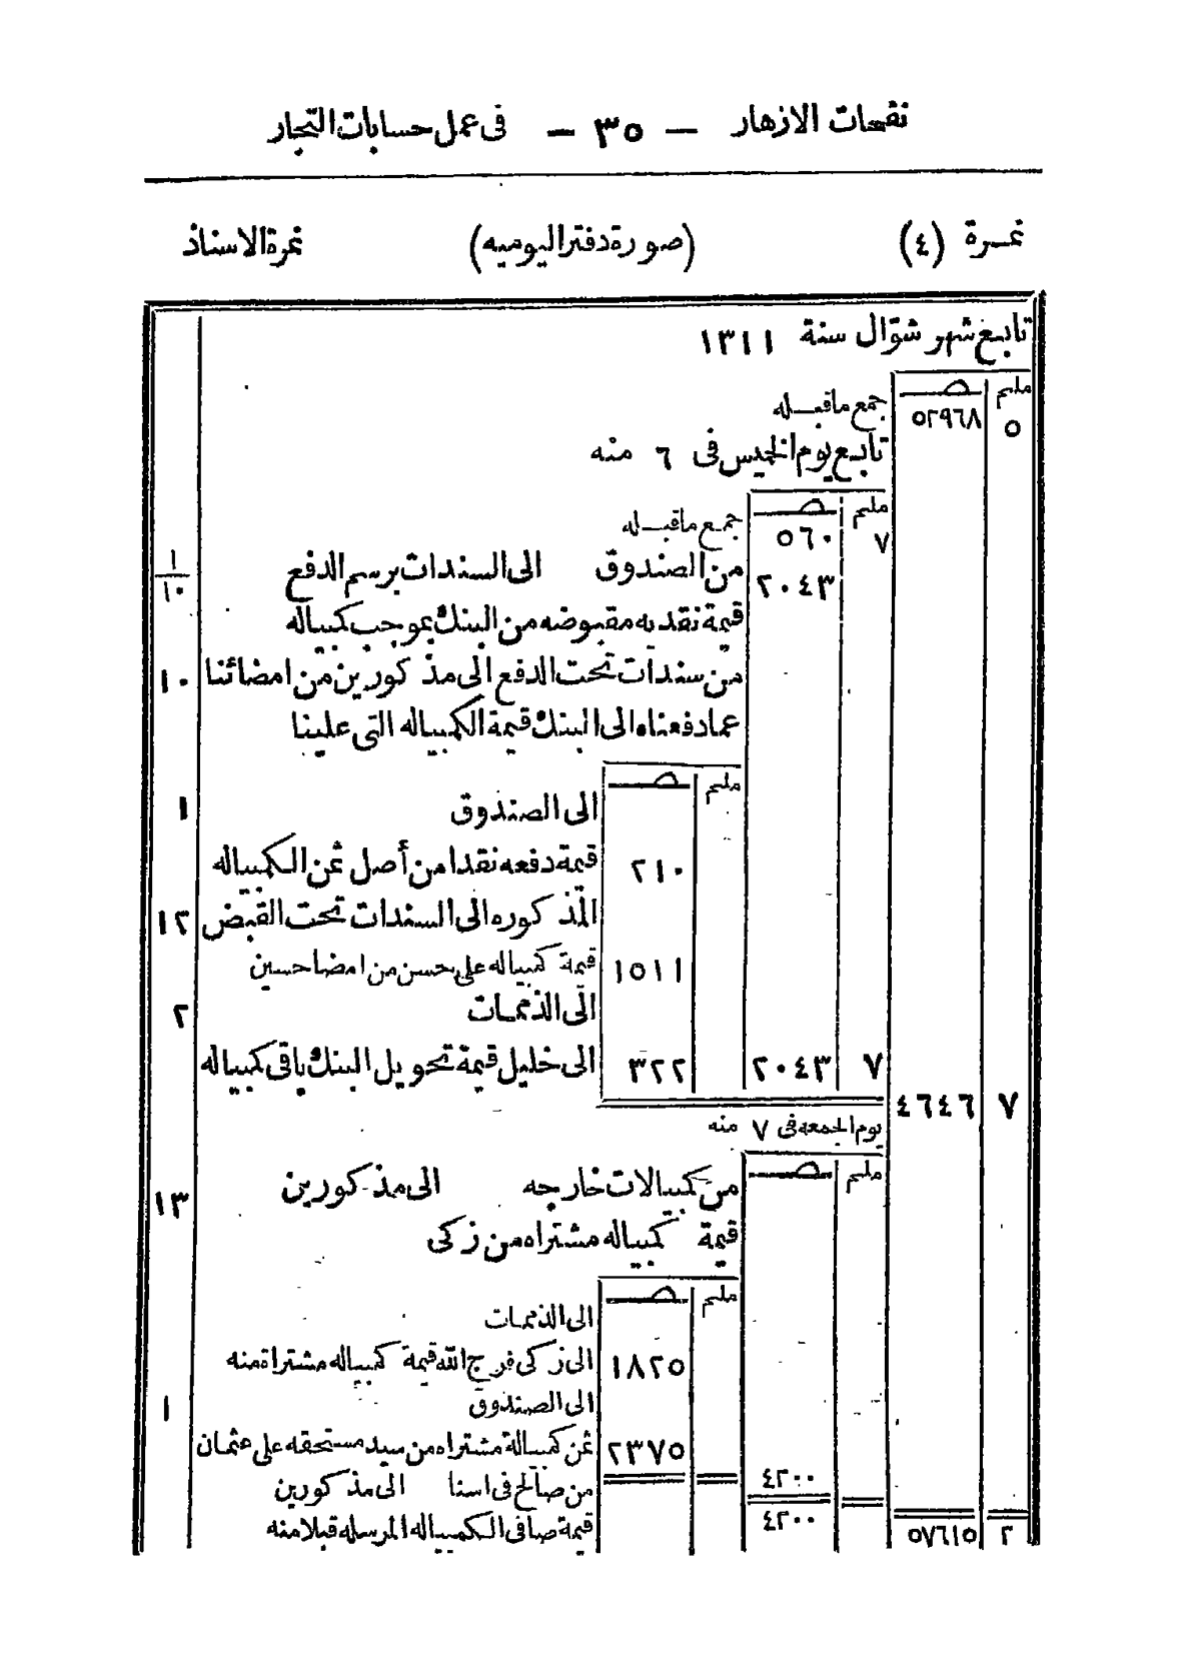 نفحات الازهار - ٣٥ - فى عمل حسابات التجار
نمرة (٤) (صورة دفتر اليوميه) نمرة الاستاذ
تابع شهر شوّال سنة ١٣١١
مليم صـ
٥ ٥٢٩٦٨ جمع ماقبله
تابع يوم الخميس فى ٦ منه
مليم صـ
٧ ٥٦٠ جمع ماقبله
٢٠٤٣ من الصندوق الى السندات برسم الدفع ١/١٠
قيمة نقديه مقبوضه من البنك بموجب كمبياله
من سندات تحت الدفع الى مذكورين من امضائنا ١٠
عما دفعناه الى البنك قيمة الكمبياله التى علينا
مليم صـ
الى الصندوق ١
٢١٠ قيمة دفعه نقدا من أصل ثمن الكمبياله
المذكوره الى السندات تحت القبض ١٢
١٥١١ قيمة كمبياله على حسن من امضا حسين
الى الذممات ٢
٧ ٢٠٤٣ ٣٢٢ الى خليل قيمة تحويل البنك باقى كمبياله
٧ ٤٦٤٦
يوم الجمعه فى ٧ منه
مليم صـ
من كمبيالات خارجه الى مذكورين ١٣
قيمة كمبياله مشتراه من زكى
مليم صـ
الى الذممات
١٨٢٥ الى زكى فرج الله قيمة كمبياله مشتراة منه
الى الصندوق ١
٢٣٧٥ ثمن كمبيالة مشتراه من سيد مستحقه على عثمان
٤٢٠٠ من صالح فى اسنا الى مذكورين
٢ ٥٧٦١٥ ٤٢٠٠ قيمة صافى الكمبياله المرسله قبلا منه